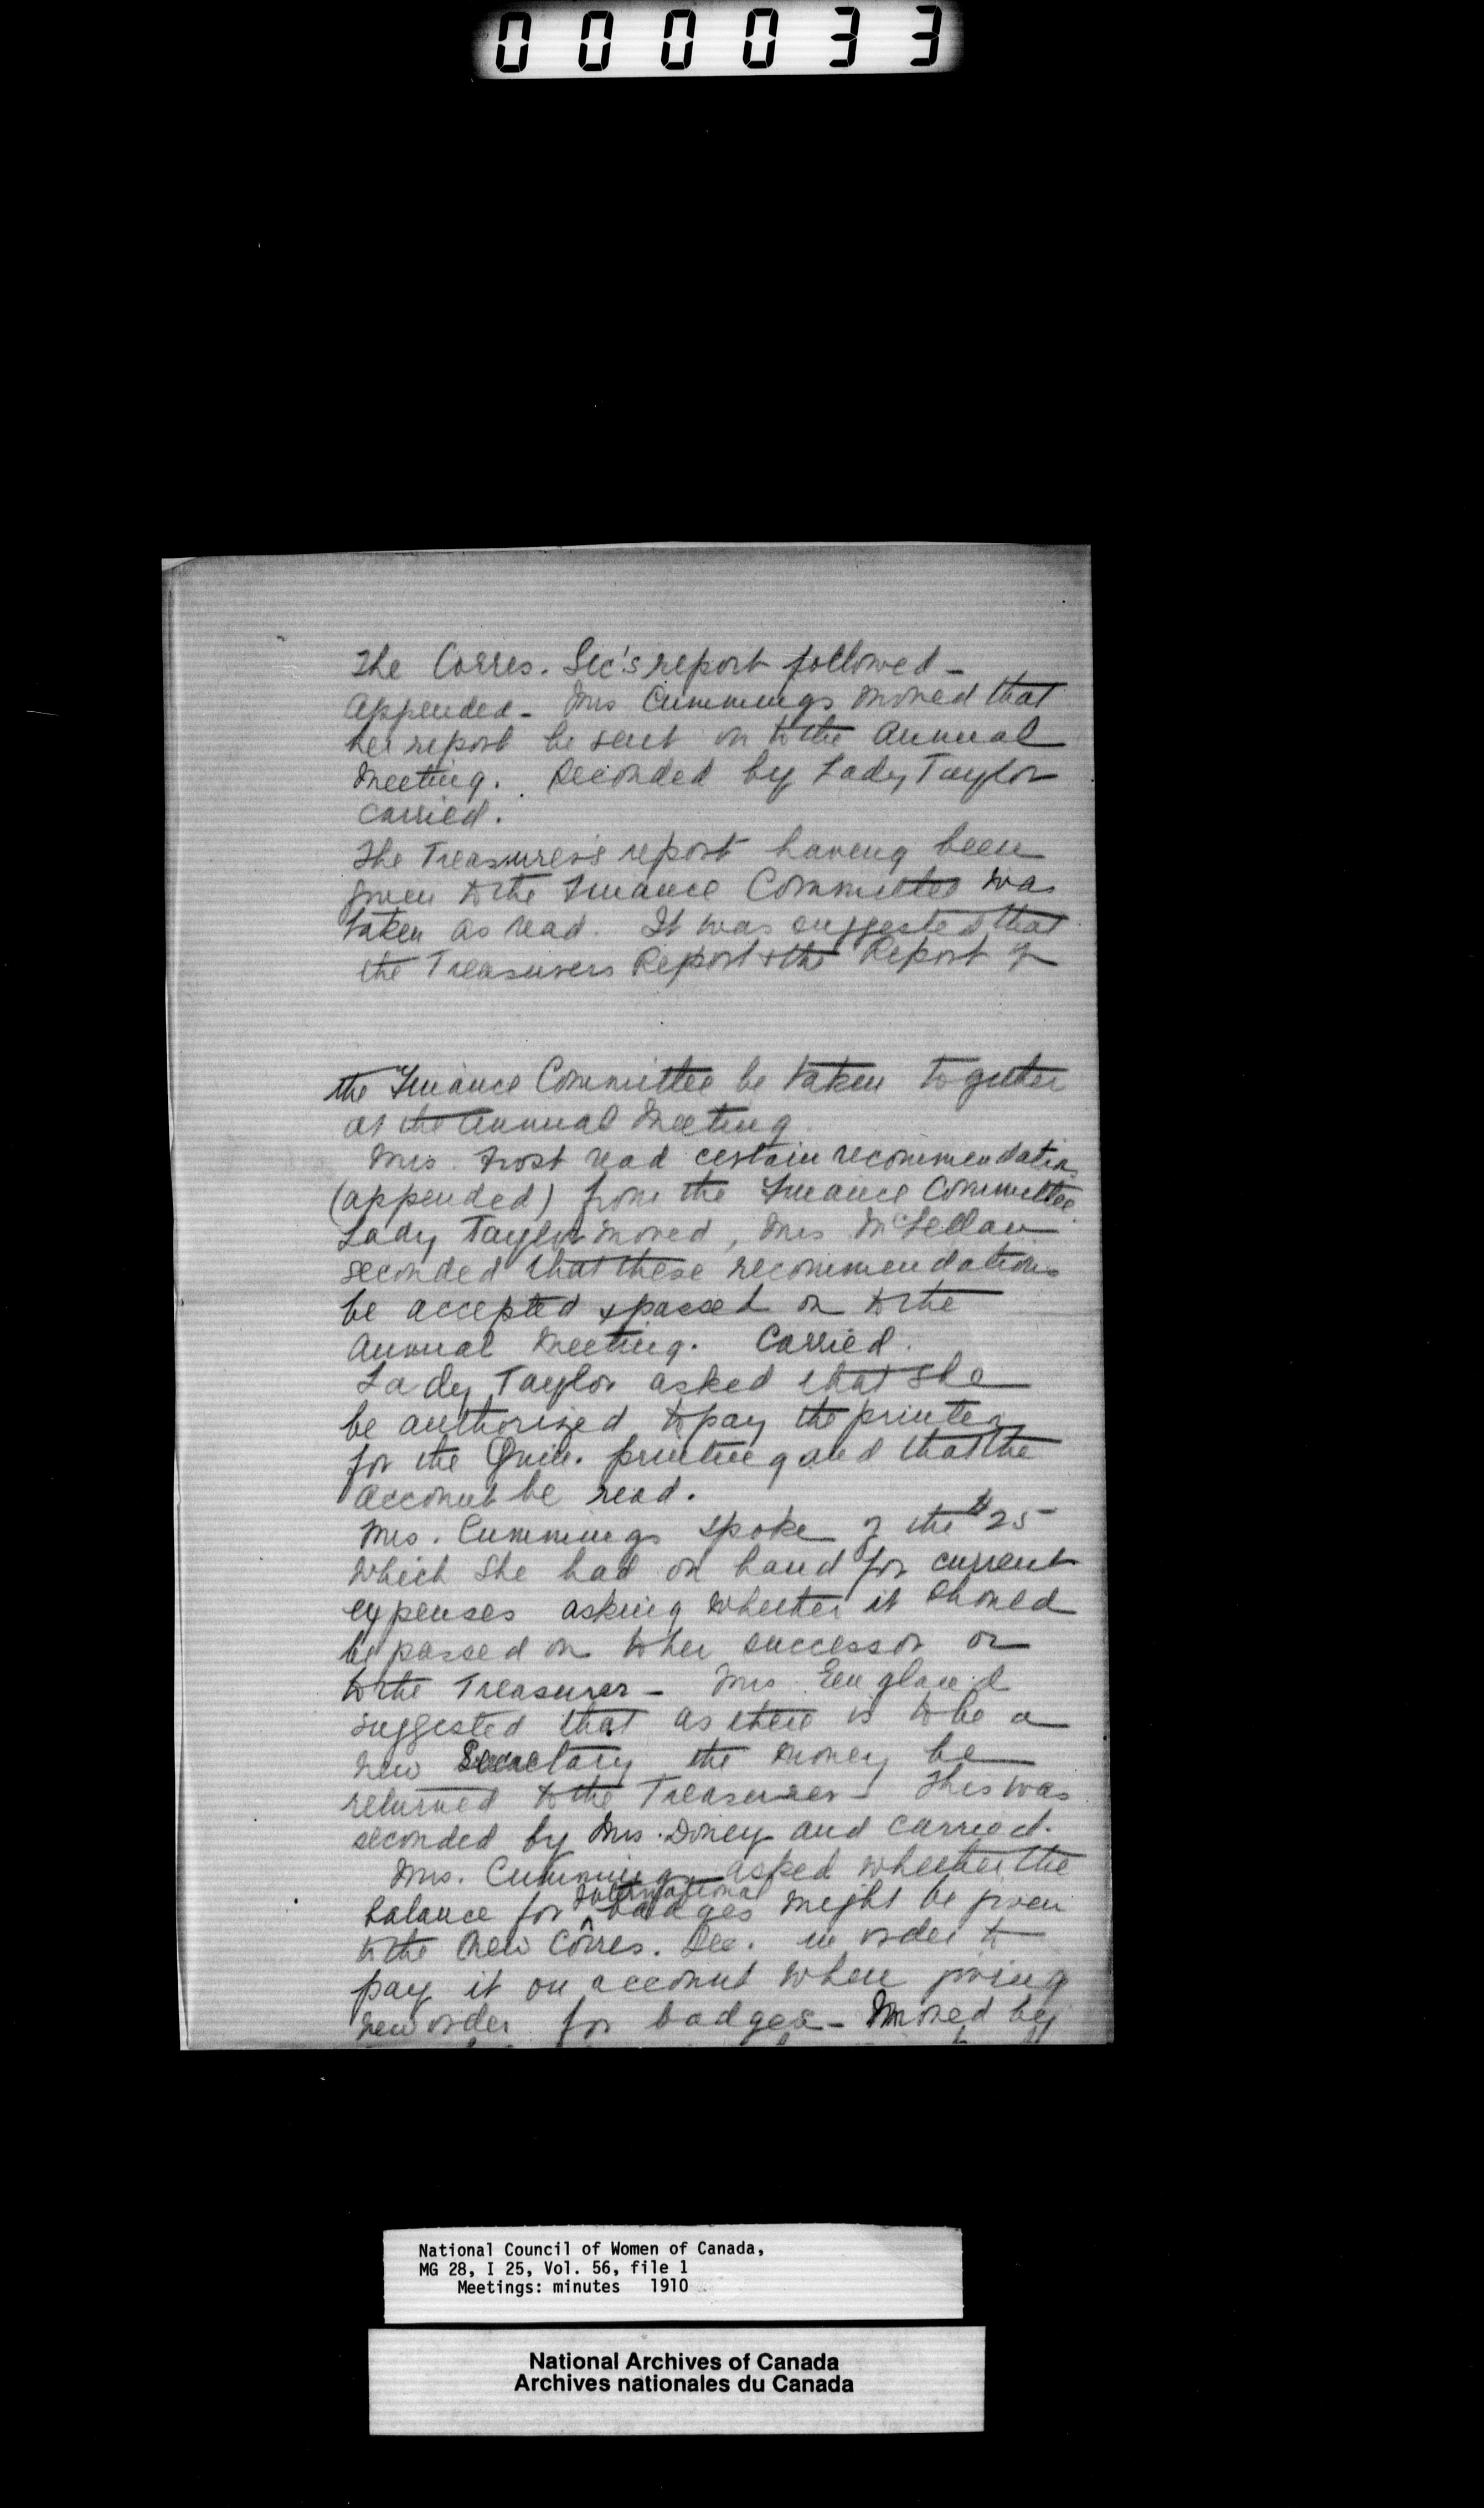 000033
The Corres. Sec's report followed -
Appended - Mrs Cummings moved that
her report be sent on to the Annual
Meeting. Seconded by Lady Taylor
carried.
The Treasurer's report having been
given to the Finance Committee was
taken as read. It was suggested that
the Treasurers Report & the Report of
the Finance Committee be taken together
at the Annual Meeting.
Mrs. Frost read certain recommendations
(appended) from the Finance Committee.
Lady Taylor moved, Mrs McLellan
seconded that these recommendations
be accepted & passed on to the
Annual Meeting. Carried.
Lady Taylor asked that she
be authorized to pay the printer
for the Quin. printing and that the
account be read.
Mrs. Cummings spoke of the $25
which she had on hand for current
expenses asking whether it should
be passed on to her successor or
to the Treasurer - Mrs England
suggested that as there is to be a
new Secretary the money be
returned to the Treasurer - This was
seconded by Mrs. Dorey and carried.
Mrs. Cummings asked whether the
balance for International badges might be given
to the new Corres. Sec. in order to
pay it on account when giving
new order for badges - Moved by
National Council of Women of Canada,
MG 28, I 25, Vol. 56, file 1
Meetings: minutes 1910
National Archives of Canada
Archives nationales du Canada